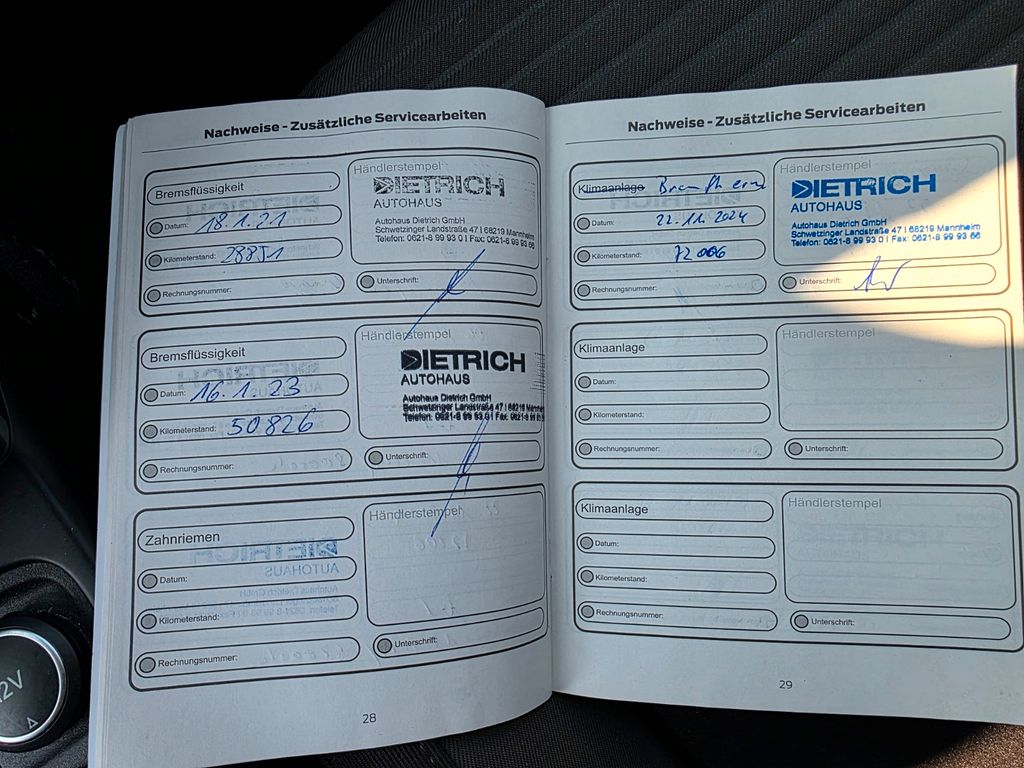 Nachweise - Zusätzliche Servicearbeiten
Bremsflüssigkeit
Datum: 18.1.21
Kilometerstand: 28851
Rechnungsnummer:
Händlerstempel
DIETRICH
AUTOHAUS
Autohaus Dietrich GmbH
Schwetzinger Landstraße 47 | 68219 Mannheim
Telefon: 0621-8 99 93 0 | Fax: 0621-8 99 93 66
Unterschrift:
Bremsflüssigkeit
Datum: 16.1.23
Kilometerstand: 50826
Rechnungsnummer:
Händlerstempel
DIETRICH
AUTOHAUS
Autohaus Dietrich GmbH
Schwetzinger Landstraße 47 | 68219 Mannheim
Telefon: 0621-8 99 93 0 | Fax: 0621-8 99 93
Unterschrift:
Zahnriemen
Datum:
Kilometerstand:
Rechnungsnummer:
Händlerstempel
Unterschrift:
28
Nachweise - Zusätzliche Servicearbeiten
Klimaanlage
Datum: 22.11.2024
Kilometerstand: 72006
Rechnungsnummer:
Händlerstempel
DIETRICH
AUTOHAUS
Autohaus Dietrich GmbH
Schwetzinger Landstraße 47 | 68219 Mannheim
Telefon: 0621-8 99 93 0 | Fax: 0621-8 99 93 66
Unterschrift:
Klimaanlage
Datum:
Kilometerstand:
Rechnungsnummer:
Händlerstempel
Unterschrift:
Klimaanlage
Datum:
Kilometerstand:
Rechnungsnummer:
Händlerstempel
Unterschrift:
29
12V